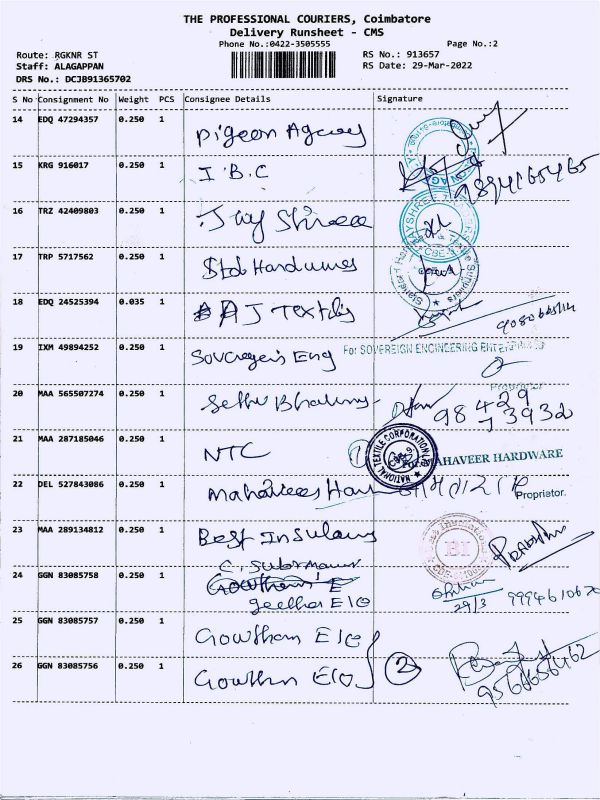 THE PROFESSIONAL COURIERS, Coimbatore
Delivery Runsheet - CMS
Phone No.:0422-3505555 Page No.:2
Route: RGKNR ST RS No.: 913657
Staff: ALAGAPPAN RS Date: 29-Mar-2022
DRS No.: DCJB91365702
S No Consignment No Weight PCS Consignee Details Signature
14 EDQ 47294357 0.250 1 Pigeon Agency
15 KRG 916017 0.250 1 I.B.C 9894165465
16 TRZ 42409803 0.250 1 Jay Shree
17 TRP 5717562 0.250 1 Hardwares
18 EDQ 24525394 0.035 1 A J Textiles
19 IXM 49894252 0.250 1 Sovereign Eng For SOVEREIGN ENGINEERING ENTERPRISES
Proprietor
20 MAA 565507274 0.250 1 Sethu 98429
73932
21 MAA 287185046 0.250 1 NTC 1 NATIONAL TEXTILE CORPORATION For MAHAVEER HARDWARE
22 DEL 527843086 0.250 1 Mahaveer Proprietor.
23 MAA 289134812 0.250 1 Best Insulam BI
24 GGN 83085758 0.250 1 C. Subramani
Gowtham E
geetha E/O 29/3
25 GGN 83085757 0.250 1 Gowtham E/O
26 GGN 83085756 0.250 1 Gowthm E/O 2 9566656462